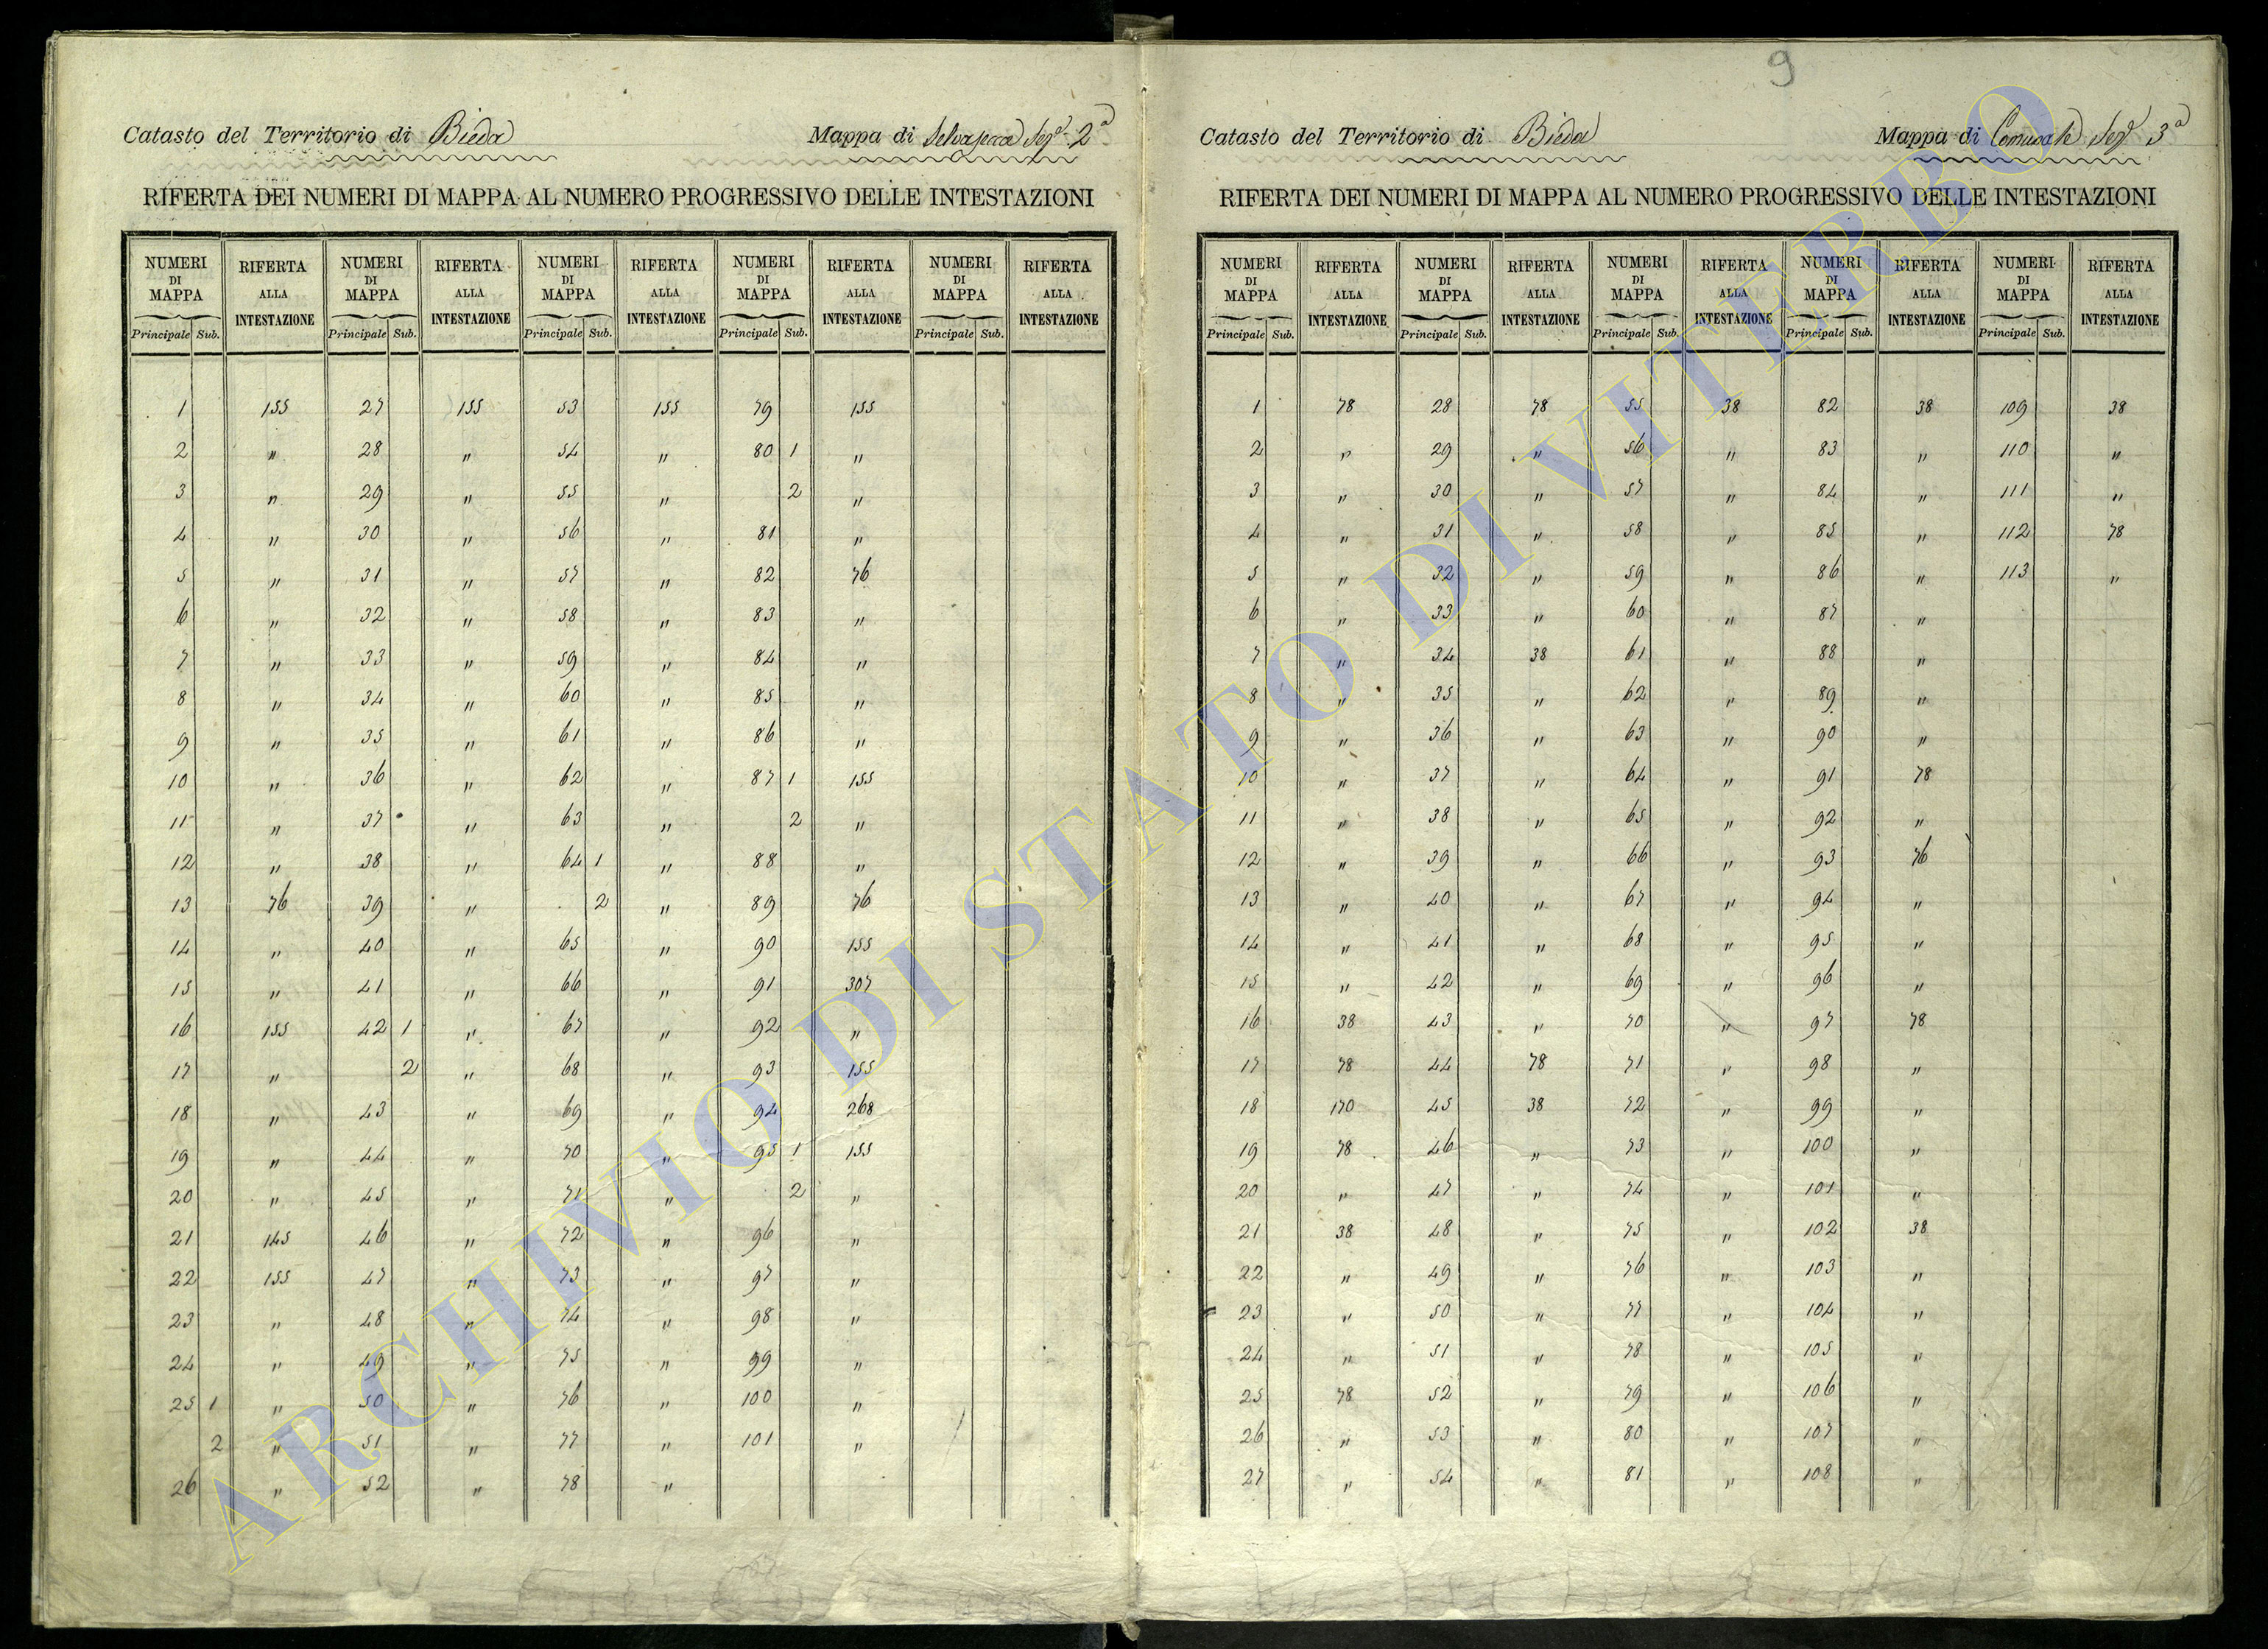 9
Catasto del Territorio di Bieda Mappa di Selvasecca Sez.e 2a
RIFERTA DEI NUMERI DI MAPPA AL NUMERO PROGRESSIVO DELLE INTESTAZIONI
NUMERI DI MAPPA RIFERTA ALLA INTESTAZIONE NUMERI DI MAPPA RIFERTA ALLA INTESTAZIONE NUMERI DI MAPPA RIFERTA ALLA INTESTAZIONE NUMERI DI MAPPA RIFERTA ALLA INTESTAZIONE NUMERI DI MAPPA RIFERTA ALLA INTESTAZIONE
Principale Sub. Principale Sub. Principale Sub. Principale Sub. Principale Sub.
1 155 27 155 53 155 79 155
2 " 28 " 54 " 80 1 "
3 " 29 " 55 " 2 "
4 " 30 " 56 " 81 "
5 " 31 " 57 " 82 76
6 " 32 " 58 " 83 "
7 " 33 " 59 " 84 "
8 " 34 " 60 " 85 "
9 " 35 " 61 " 86 "
10 " 36 " 62 " 87 1 155
11 " 37 " 63 " 2 "
12 " 38 " 64 1 " 88 "
13 76 39 " 2 " 89 76
14 " 40 " 65 " 90 155
15 " 41 " 66 " 91 307
16 155 42 1 " 67 " 92 "
17 " 2 " 68 " 93 155
18 " 43 " 69 " 94 268
19 " 44 " 70 " 95 1 155
20 " 45 " 71 " 2 "
21 145 46 " 72 " 96 "
22 155 47 " 73 " 97 "
23 " 48 " 74 " 98 "
24 " 49 " 75 " 99 "
25 1 " 50 " 76 " 100 "
2 " 51 " 77 " 101 "
26 " 52 " 78 "
Catasto del Territorio di Bieda Mappa di Comunale Sez.e 3a
RIFERTA DEI NUMERI DI MAPPA AL NUMERO PROGRESSIVO DELLE INTESTAZIONI
NUMERI DI MAPPA RIFERTA ALLA INTESTAZIONE NUMERI DI MAPPA RIFERTA ALLA INTESTAZIONE NUMERI DI MAPPA RIFERTA ALLA INTESTAZIONE NUMERI DI MAPPA RIFERTA ALLA INTESTAZIONE NUMERI DI MAPPA RIFERTA ALLA INTESTAZIONE
Principale Sub. Principale Sub. Principale Sub. Principale Sub. Principale Sub.
1 78 28 78 55 38 82 38 109 38
2 " 29 " 56 " 83 " 110 "
3 " 30 " 57 " 84 " 111 "
4 " 31 " 58 " 85 " 112 78
5 " 32 " 59 " 86 " 113 "
6 " 33 " 60 " 87 "
7 " 34 38 61 " 88 "
8 " 35 " 62 " 89 "
9 " 36 " 63 " 90 "
10 " 37 " 64 " 91 78
11 " 38 " 65 " 92 "
12 " 39 " 66 " 93 76
13 " 40 " 67 " 94 "
14 " 41 " 68 " 95 "
15 " 42 " 69 " 96 "
16 38 43 " 70 " 97 78
17 78 44 78 71 " 98 "
18 170 45 38 72 " 99 "
19 78 46 " 73 " 100 "
20 " 47 " 74 " 101 "
21 38 48 " 75 " 102 38
22 " 49 " 76 " 103 "
23 " 50 " 77 " 104 "
24 " 51 " 78 " 105 "
25 78 52 " 79 " 106 "
26 " 53 " 80 " 107 "
27 " 54 " 81 " 108 "
ARCHIVIO DI STATO DI VITERBO